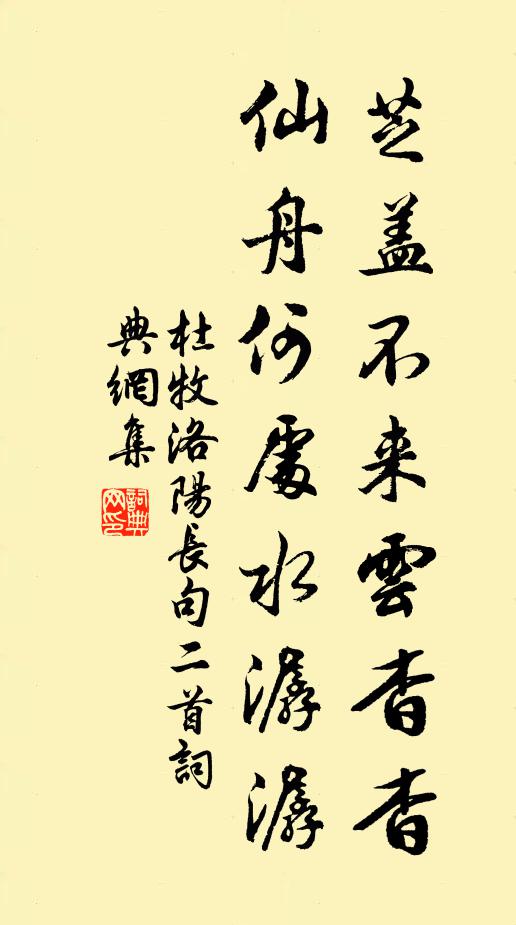 芝盖不来雲杳杳
仙舟何處水潺潺
杜牧洛陽長句二首詞
典網集
詞典网印